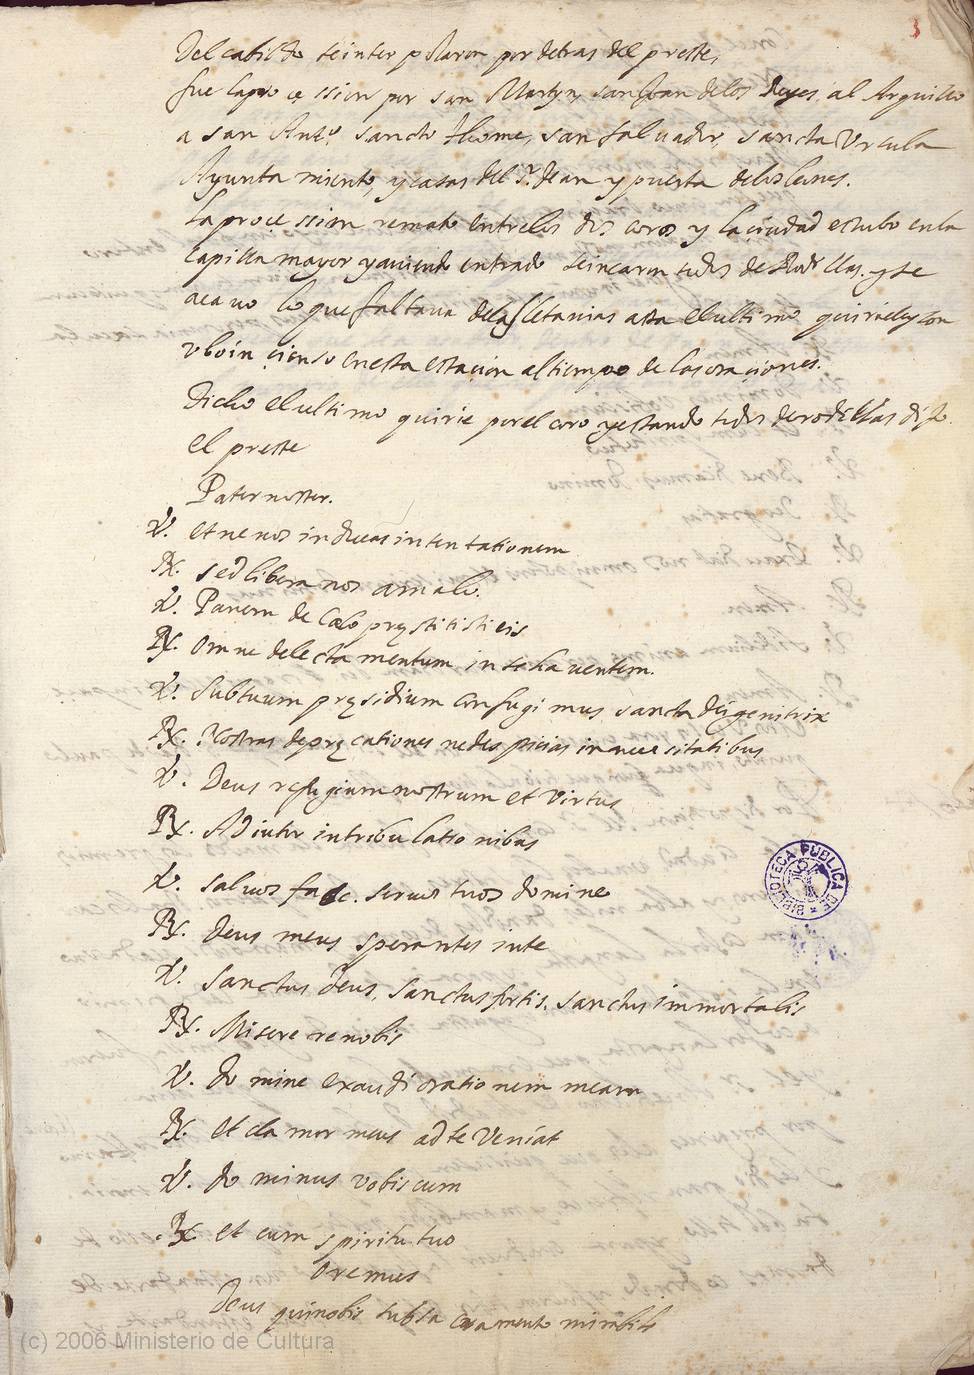 3
Del cabildo se interpolaron por detras del preste,
fue la procession por san Martyn, san Juan de los Reyes, al Arquillo
a san Anto, sancto thome, san saluador, sancta Vrsula
Ayuntamiento, y casas del Sr. dean y puerta de los leones.
La procession remato entre los dos coros y la ciudad estubo en la
capilla mayor y auiendo entrado se incaron todos de Rodillas. y se
acauo lo que faltaua de las letanias asta el ultimo quirieleyson
vbo incienso en esta estacion al tiempo de las oraciones.
Dicho el ultimo quirie por el coro y estando todos de rodillas dijo
el preste
Pater noster.
V. et ne nos inducas in tentationem
R. sed libera nos a malo.
V. Panem de Cælo pręstitisti eis
R. Omne delectamentum in se habentem.
V. Sub tuum pręsidium confugimus sancta dei genitrix
R. Nostras depręcationes ne despicias in necessitatibus
V. Deus refugium nostrum et virtus
R. Adiutor in tribulationibus
V. saluos fac. seruos tuos domine
R. Deus meus sperantes in te
V. Sanctus deus, sanctus fortis, sanctus immortalis
R. Miserere nobis
V. domine exaudi orationem meam
R. et clamor meus ad te veniat
V. dominus vobiscum
R. et cum spiritu tuo
Oremus
Deus qui nobis sub sacramento mirabili
BIBLIOTECA PUBLICA DE
(c) 2006 Ministerio de Cultura